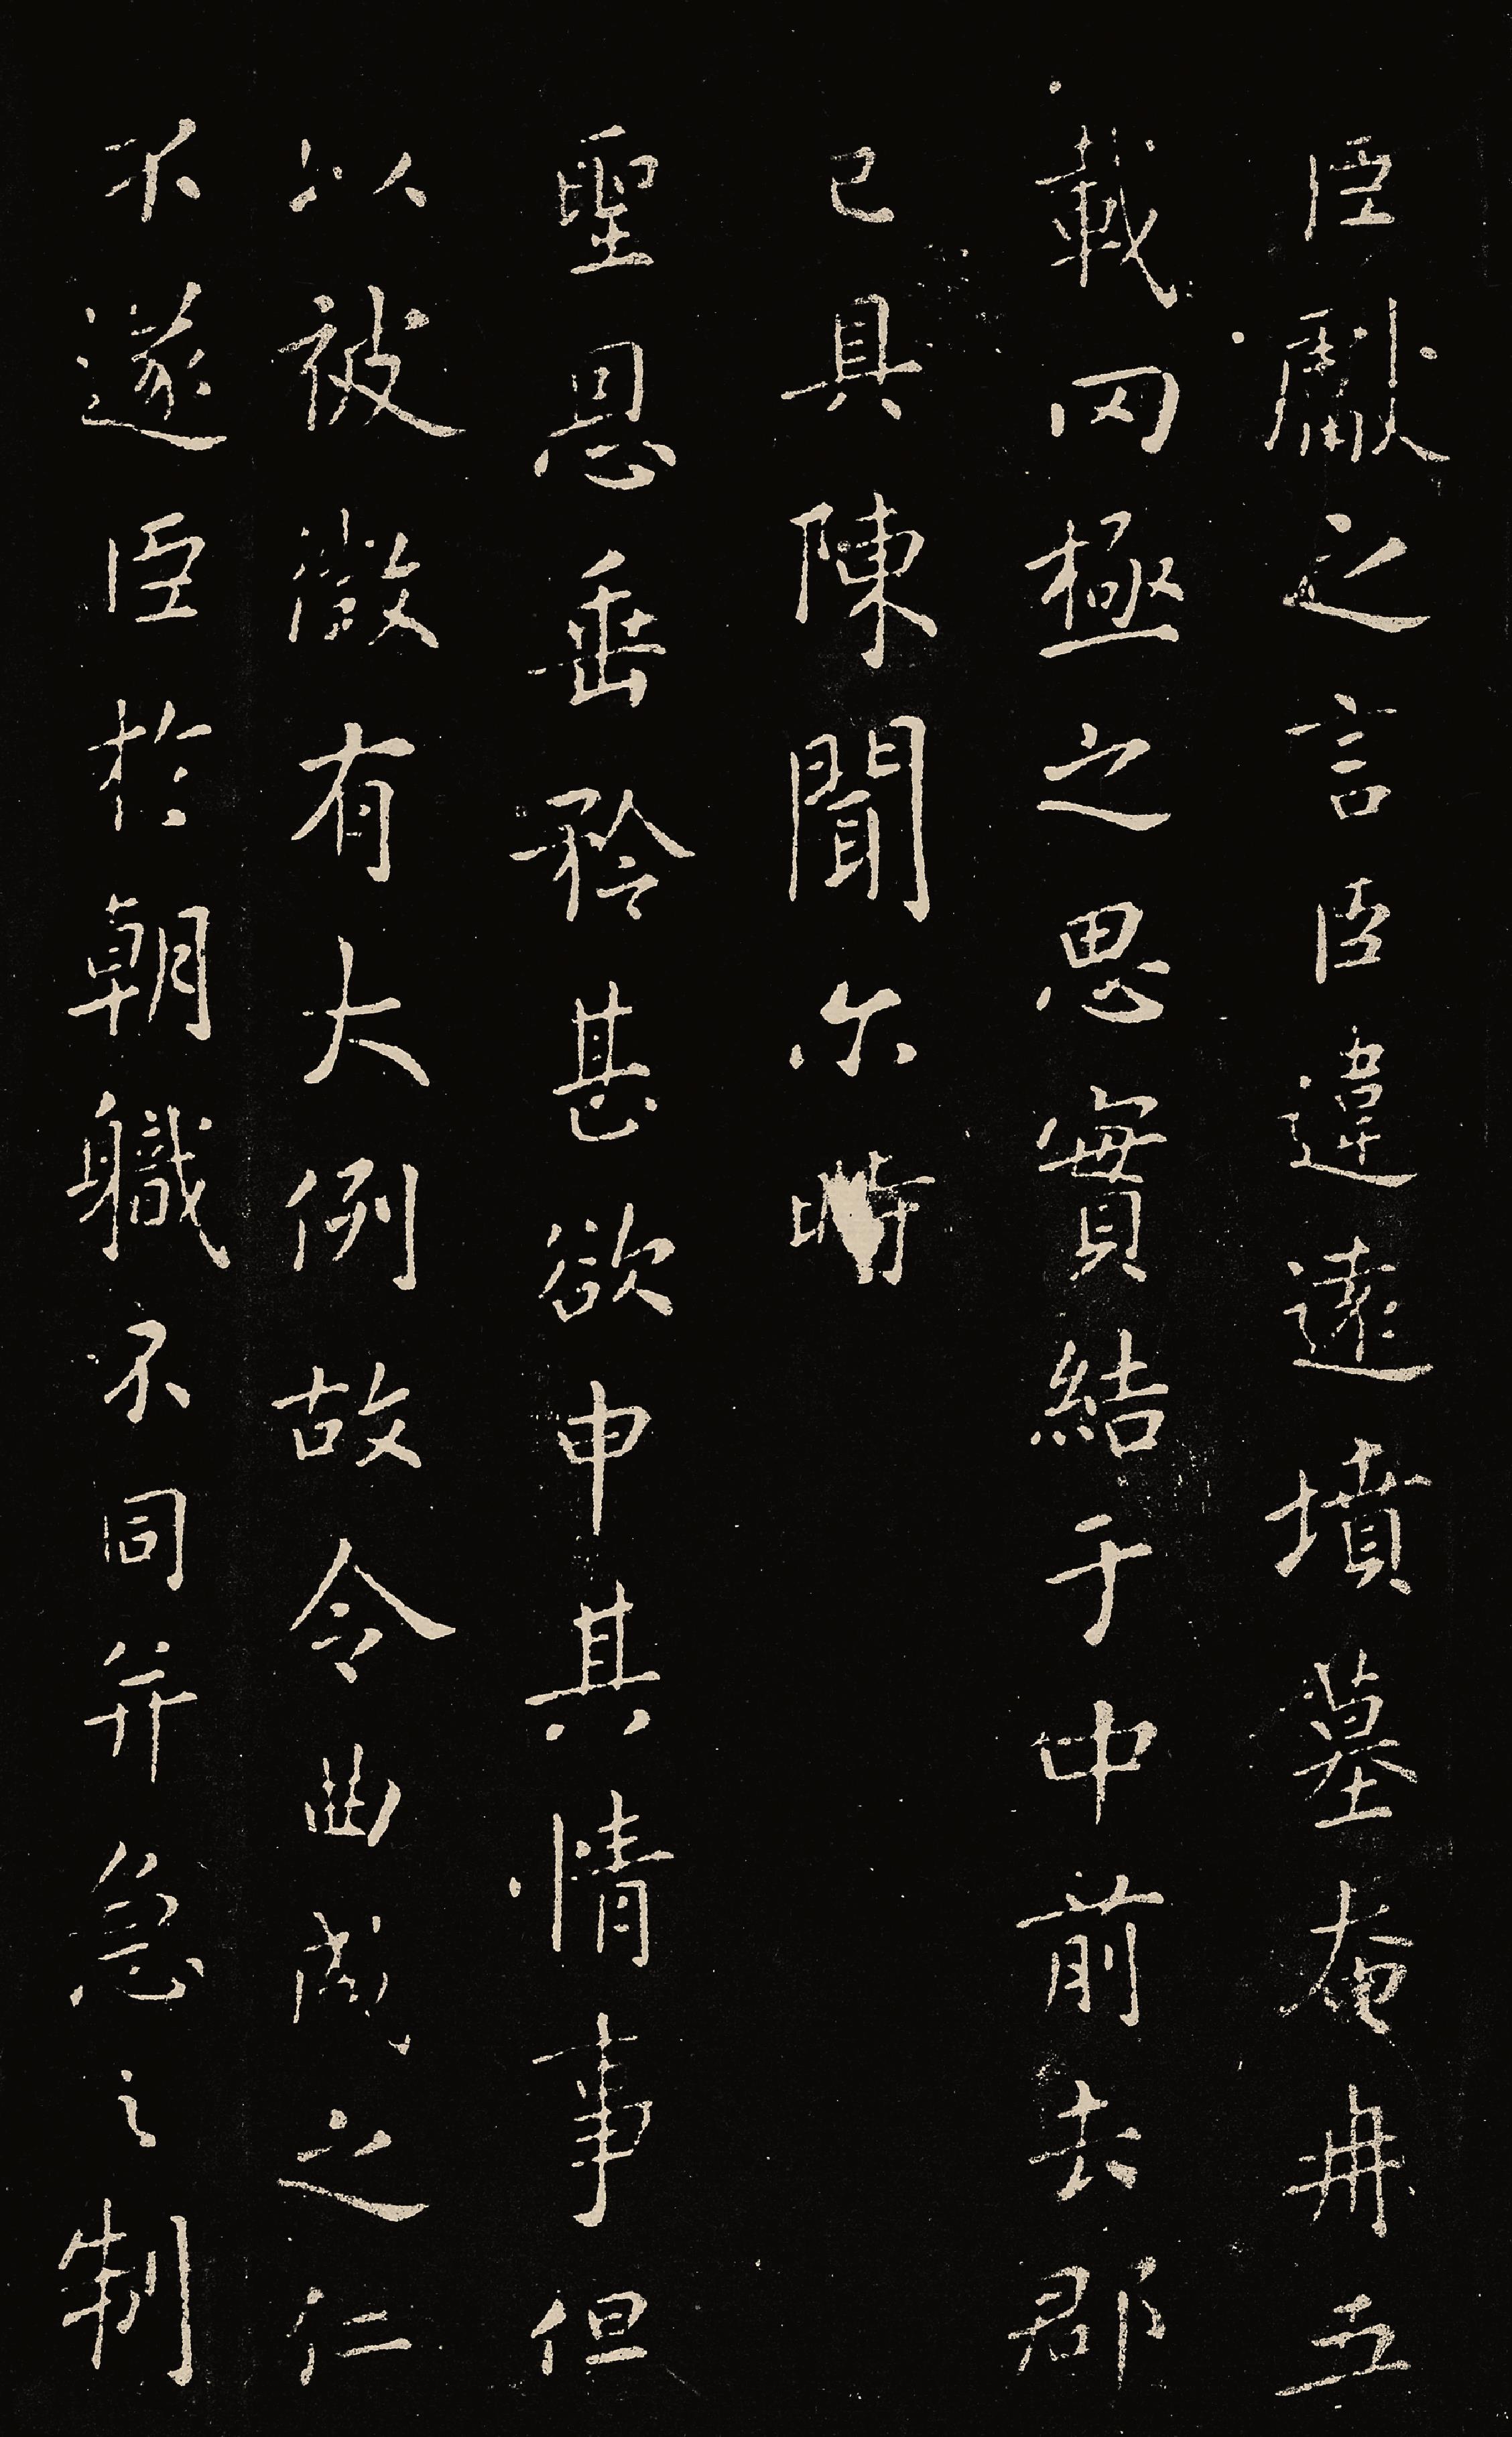 臣獻之言臣違遠墳墓奄冉五
載罔極之思實結于中前去郡
已具陳聞尔時
聖恩垂矜甚欲申其情事但
以被徵有大例故令曲成之仁
不遂臣於朝職不同并急之制